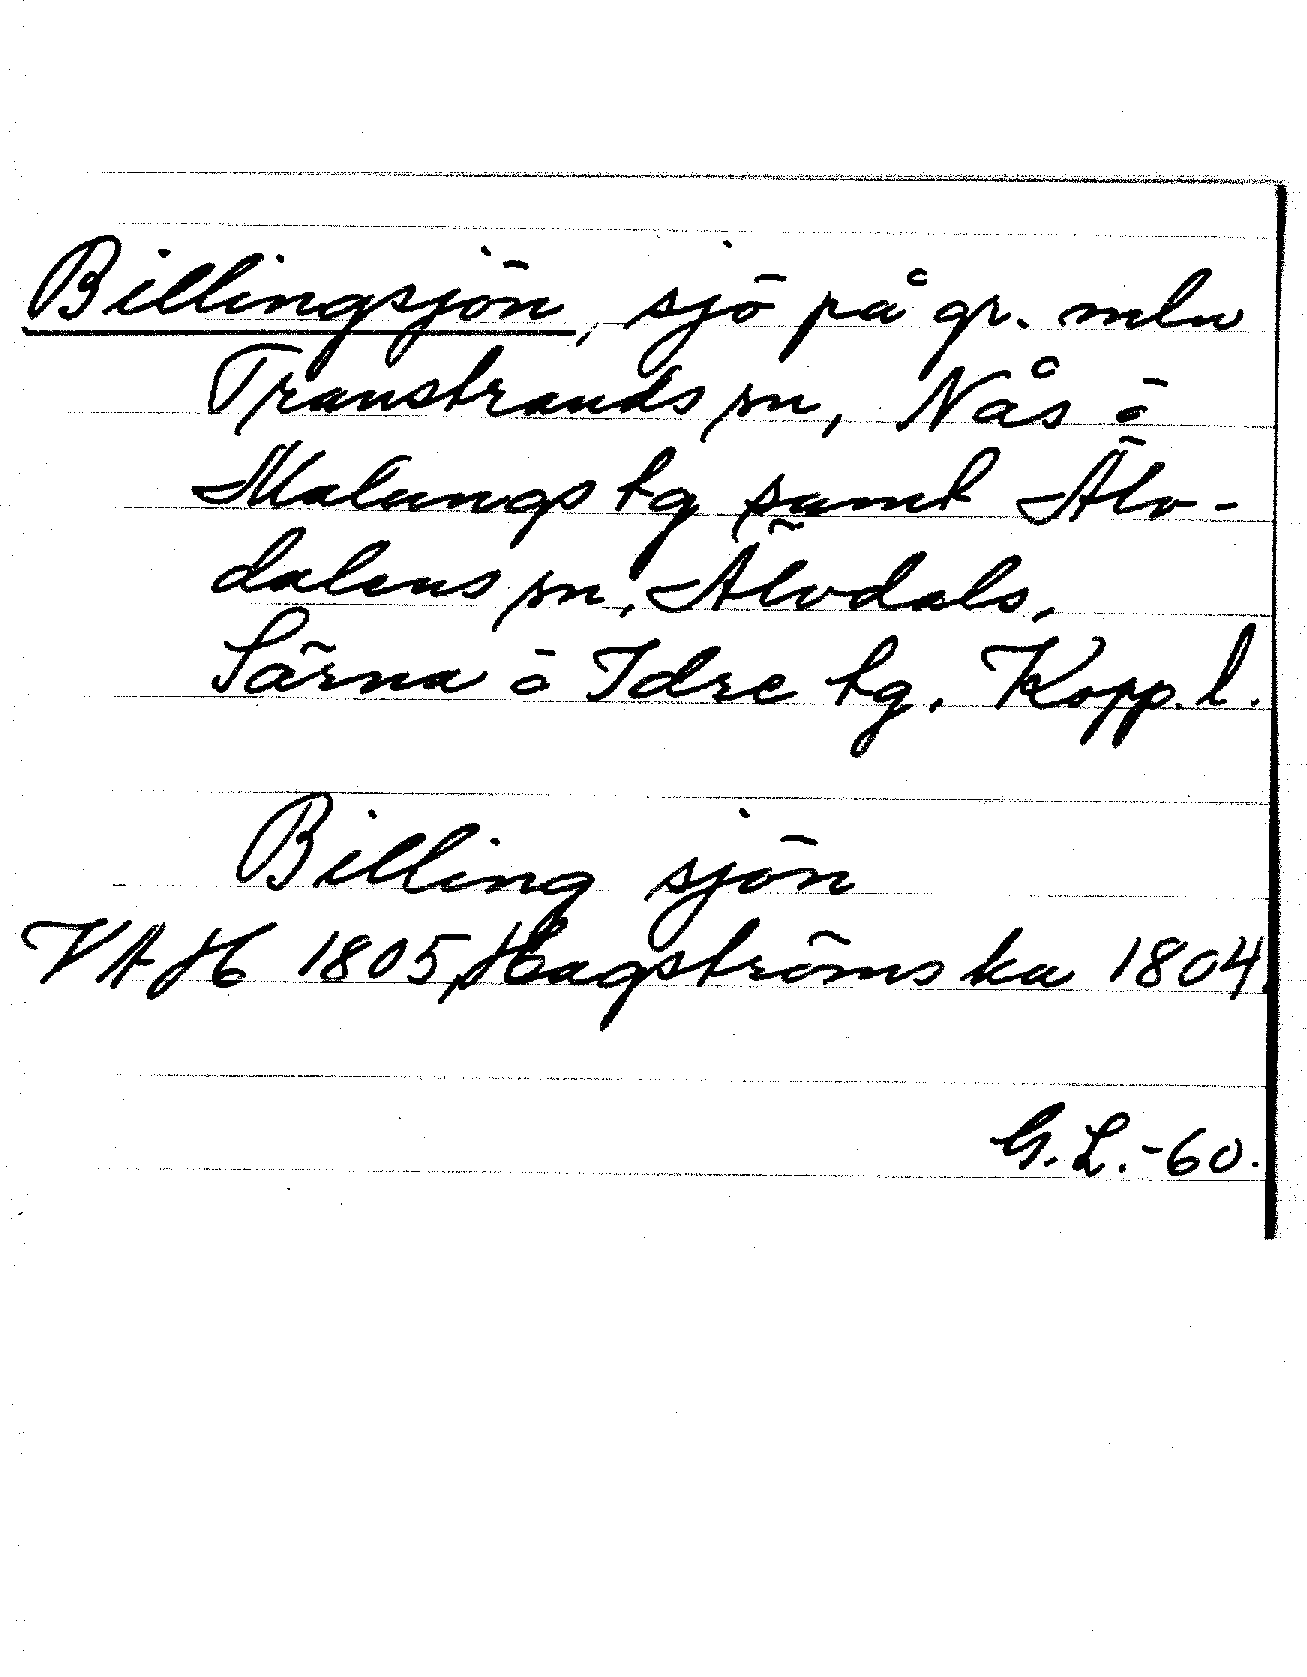 Billingsjön, sjö på gr. mln
Transtrands sn, Nås ö
Malungs tg samt Älv-
dalens sn, Älvdals,
Särna ö Idre tg. Kopp. l.
Billing sjön
VAH 1805, Hagströmska 1804.
G. L. -60.